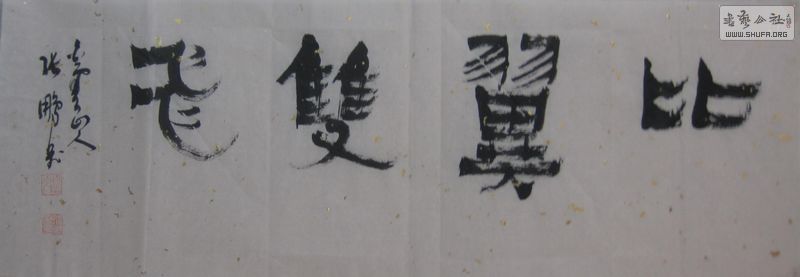 比翼雙飛
山人
張鵬書
書藝公社
WWW.SHUFA.ORG